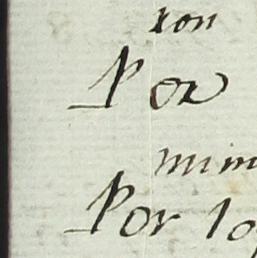 ron
Por
mim
Por lo